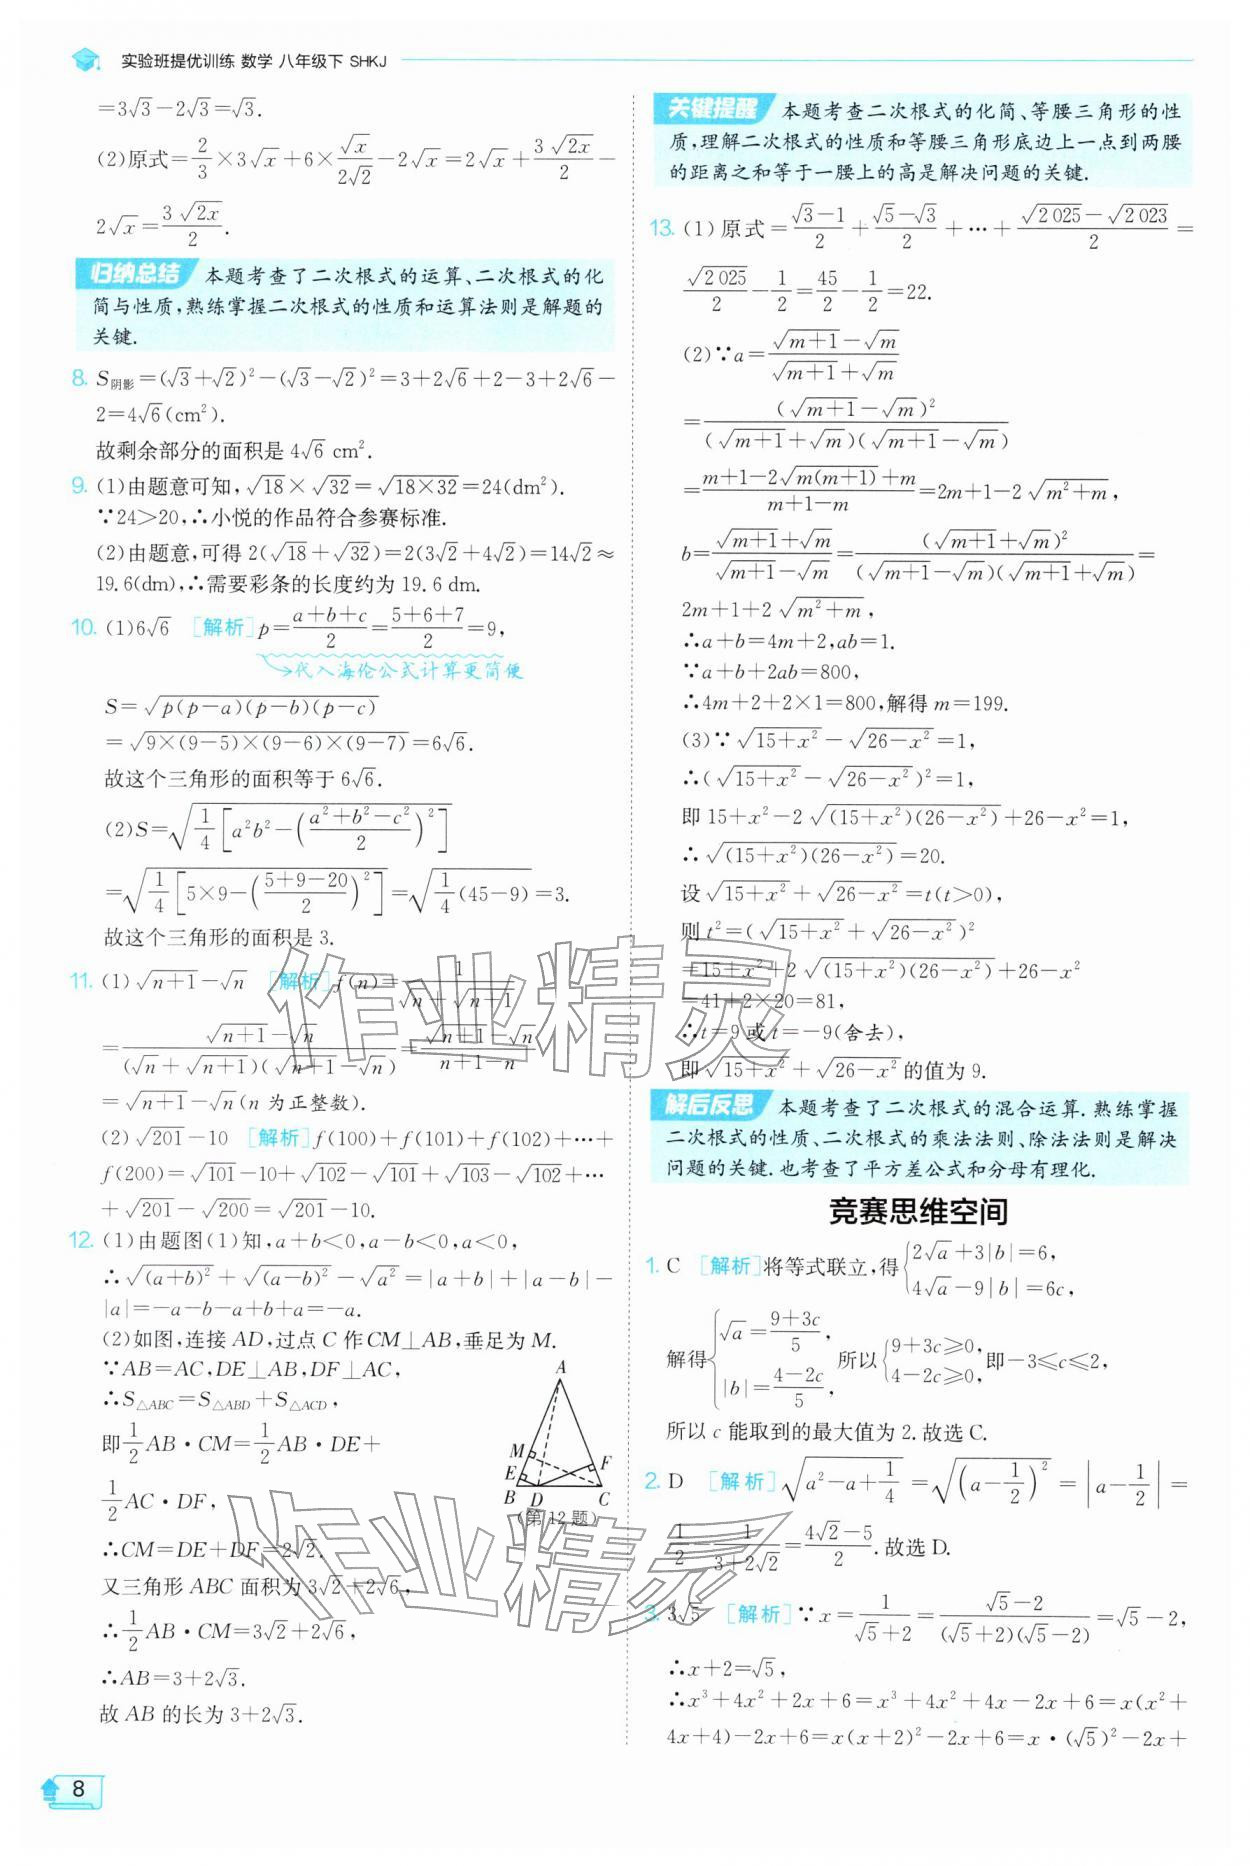 实验班提优训练 数学 八年级下 SHKJ
=3√3−2√3=√3.
(2)原式=2/3×3√x+6×√x/(2√2)−2√x=2√x+(3√(2x))/2−
2√x=(3√(2x))/2.
归纳总结 本题考查了二次根式的运算、二次根式的化
简与性质,熟练掌握二次根式的性质和运算法则是解题的
关键.
8. S阴影=(√3+√2)²−(√3−√2)²=3+2√6+2−3+2√6−
2=4√6(cm²).
故剩余部分的面积是 4√6 cm².
9. (1)由题意可知,√18×√32=√(18×32)=24(dm²).
∵24>20,∴小悦的作品符合参赛标准.
(2)由题意,可得 2(√18+√32)=2(3√2+4√2)=14√2≈
19.6(dm),∴需要彩条的长度约为 19.6 dm.
10. (1)6√6 [解析]p=(a+b+c)/2=(5+6+7)/2=9,
→代入海伦公式计算更简便
S=√(p(p−a)(p−b)(p−c))
=√(9×(9−5)×(9−6)×(9−7))=6√6.
故这个三角形的面积等于 6√6.
(2)S=√(1/4[a²b²−((a²+b²−c²)/2)²])
=√(1/4[5×9−((5+9−20)/2)²])=√(1/4(45−9))=3.
故这个三角形的面积是 3.
11. (1)√(n+1)−√n [解析]f(n)=1/(√n+√(n+1))
=(√(n+1)−√n)/((√n+√(n+1))(√(n+1)−√n))=(√(n+1)−√n)/(n+1−n)
=√(n+1)−√n(n 为正整数).
(2)√201−10 [解析]f(100)+f(101)+f(102)+⋯+
f(200)=√101−10+√102−√101+√103−√102+⋯
+√201−√200=√201−10.
12. (1)由题图(1)知,a+b<0,a−b<0,a<0,
∴√((a+b)²)+√((a−b)²)−√(a²)=|a+b|+|a−b|−
|a|=−a−b−a+b+a=−a.
(2)如图,连接 AD,过点 C 作 CM⊥AB,垂足为 M.
∵AB=AC,DE⊥AB,DF⊥AC,
∴S△ABC=S△ABD+S△ACD,
即1/2AB·CM=1/2AB·DE+
1/2AC·DF,
∴CM=DE+DF=2√2.
又三角形 ABC 面积为 3√2+2√6,
∴1/2AB·CM=3√2+2√6,
∴AB=3+2√3.
故 AB 的长为 3+2√3.
A
M
E
F
B D C
(第 12 题)
关键提醒 本题考查二次根式的化简、等腰三角形的性
质,理解二次根式的性质和等腰三角形底边上一点到两腰
的距离之和等于一腰上的高是解决问题的关键.
13. (1)原式=(√3−1)/2+(√5−√3)/2+⋯+(√2 025−√2 023)/2=
√2 025/2−1/2=45/2−1/2=22.
(2)∵a=(√(m+1)−√m)/(√(m+1)+√m)
=(√(m+1)−√m)²/((√(m+1)+√m)(√(m+1)−√m))
=(m+1−2√(m(m+1))+m)/(m+1−m)=2m+1−2√(m²+m),
b=(√(m+1)+√m)/(√(m+1)−√m)=(√(m+1)+√m)²/((√(m+1)−√m)(√(m+1)+√m))=
2m+1+2√(m²+m),
∴a+b=4m+2,ab=1.
∵a+b+2ab=800,
∴4m+2+2×1=800,解得 m=199.
(3)∵√(15+x²)−√(26−x²)=1,
∴(√(15+x²)−√(26−x²))²=1,
即 15+x²−2√((15+x²)(26−x²))+26−x²=1,
∴√((15+x²)(26−x²))=20.
设√(15+x²)+√(26−x²)=t(t>0),
则 t²=(√(15+x²)+√(26−x²))²
=15+x²+2√((15+x²)(26−x²))+26−x²
=41+2×20=81,
∴t=9 或 t=−9(舍去),
即√(15+x²)+√(26−x²)的值为 9.
解后反思 本题考查了二次根式的混合运算.熟练掌握
二次根式的性质、二次根式的乘法法则、除法法则是解决
问题的关键.也考查了平方差公式和分母有理化.
竞赛思维空间
1. C [解析]将等式联立,得{2√a+3|b|=6, 4√a−9|b|=6c,
解得{√a=(9+3c)/5, |b|=(4−2c)/5, 所以{9+3c≥0, 4−2c≥0,即−3≤c≤2,
所以 c 能取到的最大值为 2.故选 C.
2. D [解析]√(a²−a+1/4)=√((a−1/2)²)=|a−1/2|=
1/2−1/(3+2√2)=(4√2−5)/2.故选 D.
3. 3√5 [解析]∵x=1/(√5+2)=(√5−2)/((√5+2)(√5−2))=√5−2,
∴x+2=√5,
∴x³+4x²+2x+6=x³+4x²+4x−2x+6=x(x²+
4x+4)−2x+6=x(x+2)²−2x+6=x·(√5)²−2x+
8
作业精灵
作业精灵